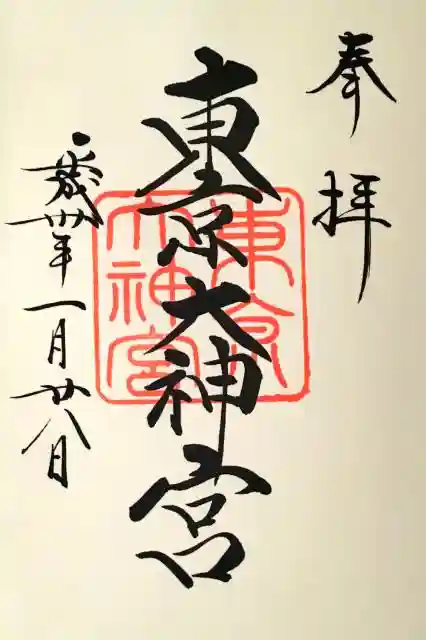 奉拝
東京大神宮
東京大神宮
平成卅年一月廿八日